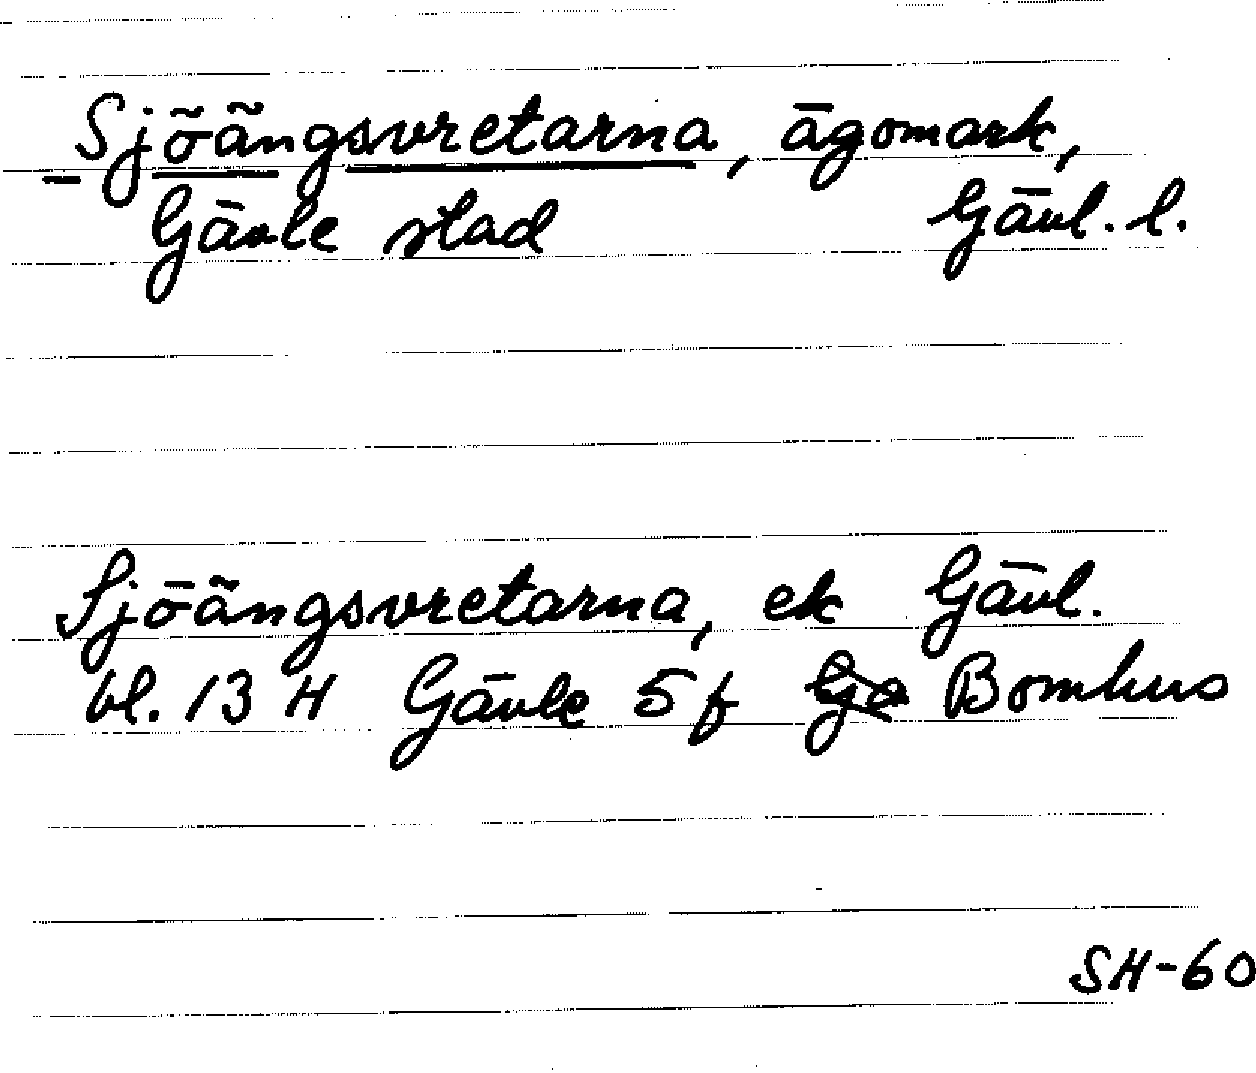 Sjöängsvretarna, ägomark,
Gävle stad Gävl. l.
Sjöängsvretarna, ek Gävl.
bl. 13 H Gävle 5 f Bomhus
SH-60